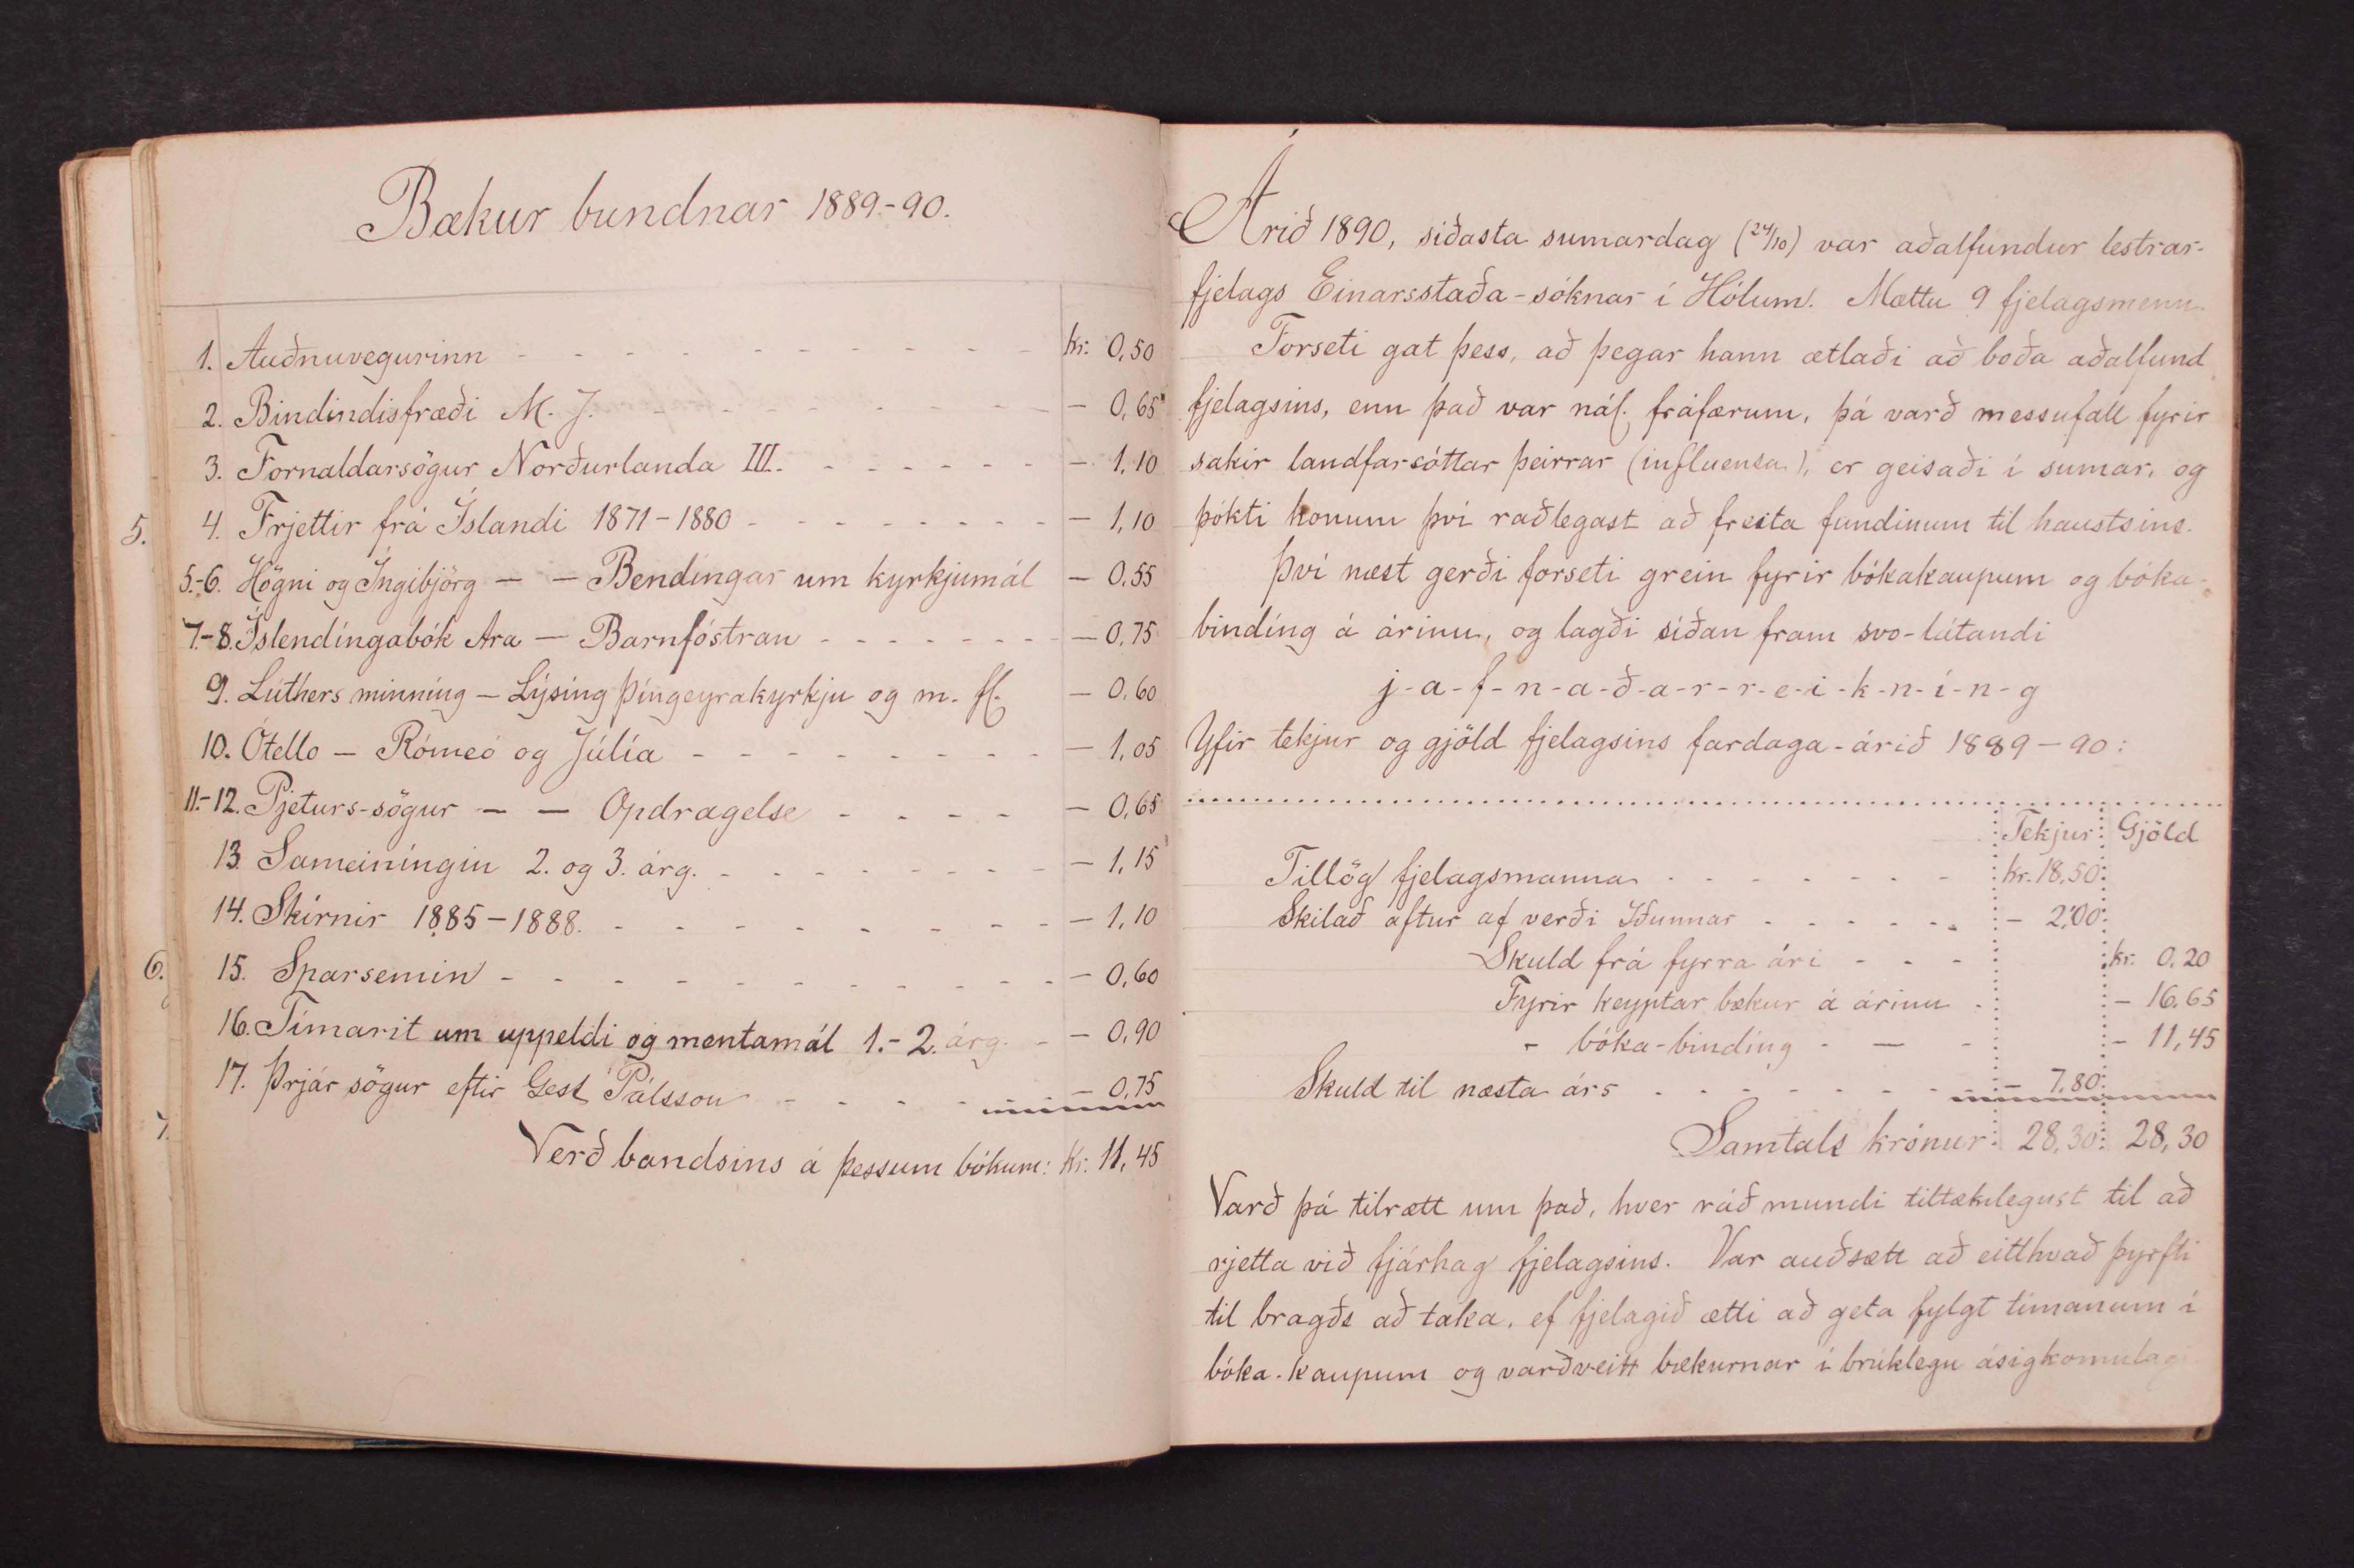 Bækur bundnar 1889-90.
1. Auðnuvegurinn - - - - - - - - - - kr. 0,50
2. Bindindisfræði M. J. - - - - - - - - - 0,65
3. Fornaldarsögur Norðurlanda III. - - - - - - - 1,10
5.
4. Frjettir frá Íslandi 1871-1880 - - - - - - - - - - 1,10
5.-6. Högni og Íngibjörg - - Bendíngar um kyrkjumál - 0,55
7.-8. Íslendíngabók Ara - Barnfóstran - - - - - - - - 0,75
9. Lúthers minníng - Lýsíng Þíngeyrakyrkju og m. fl. - 0,60
10. Ótello - Rómeó og Júlía - - - - - - - - - 1,05
11.-12. Pjeturs-sögur - - Opdragelse - - - - - 0,65
13. Sameiníngin 2. og 3. árg. - - - - - - - - 1,15
14. Skírnir 1885-1888. - - - - - - - - - 1,10
6.
15. Sparsemin - - - - - - - - - - - 0,60
16. Tímarit um uppeldi og mentamál 1.-2. árg. - - 0,90
17. Þrjár sögur eftir Gest Pálsson - - - - - 0,75
7.
Verð bandsins á þessum bókum: kr. 11,45
Árið 1890, síðasta sumardag (24/10) var aðalfundur lestrar-
fjelags Einarsstaða-sóknar í Hólum. Mættu 9 fjelagsmenn.
Forseti gat þess, að þegar hann ætlaði að boða aðalfund
fjelagsins, enn það var nál. fráfærum, þá varð messufall fyrir
sakir landfarsóttar þeirrar (influensa), er geisaði í sumar, og
þókti honum því raðlegast að fresta fundinum til haustsins.
Því næst gerði forseti grein fyrir bókakaupum og bóka-
bindíng á árinu, og lagði síðan fram svo-látandi
j-a-f-n-a-ð-a-r-r-e-i-k-n-í-n-g
Yfir tekjur og gjöld fjelagsins fardaga-árið 1889-90:
Tekjur Gjöld
Tillög fjelagsmanna - - - - - - - kr. 18,50
Skilað aftur af verði Iðunnar - - - - - - 2,00
Skuld frá fyrra ári - - - kr. 0,20
Fyrir keyptar bækur á árinu - - 16,65
- bóka-bindíng - - - - 11,45
Skuld til næsta árs - - - - - - - 7,80
Samtals krónur 28,30 28,30
Varð þá tilrætt um það, hver ráð mundi tiltækilegust til að
rjetta við fjárhag fjelagsins. Var auðsætt að eitthvað þyrfti
til bragðs að taka, ef fjelagið ætti að geta fylgt tímanum í
bóka-kaupum og varðveitt bækurnar í brúklegu ásigkomulagi